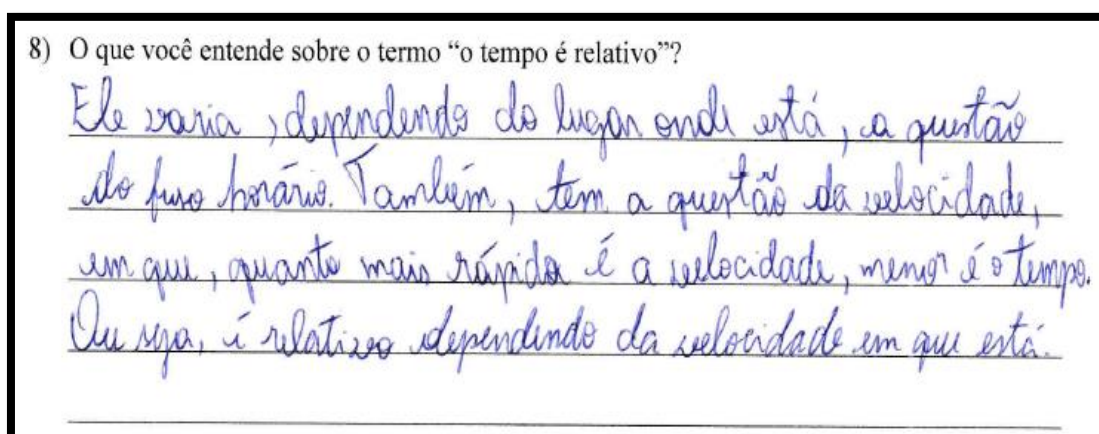 8) O que você entende sobre o termo “o tempo é relativo”?
Ele varia, dependendo do lugar onde está, a questão
do fuso horário. Também, tem a questão da velocidade,
em que, quanto mais rápida é a velocidade, menor é o tempo.
Ou seja, é relativo dependendo da velocidade em que está.